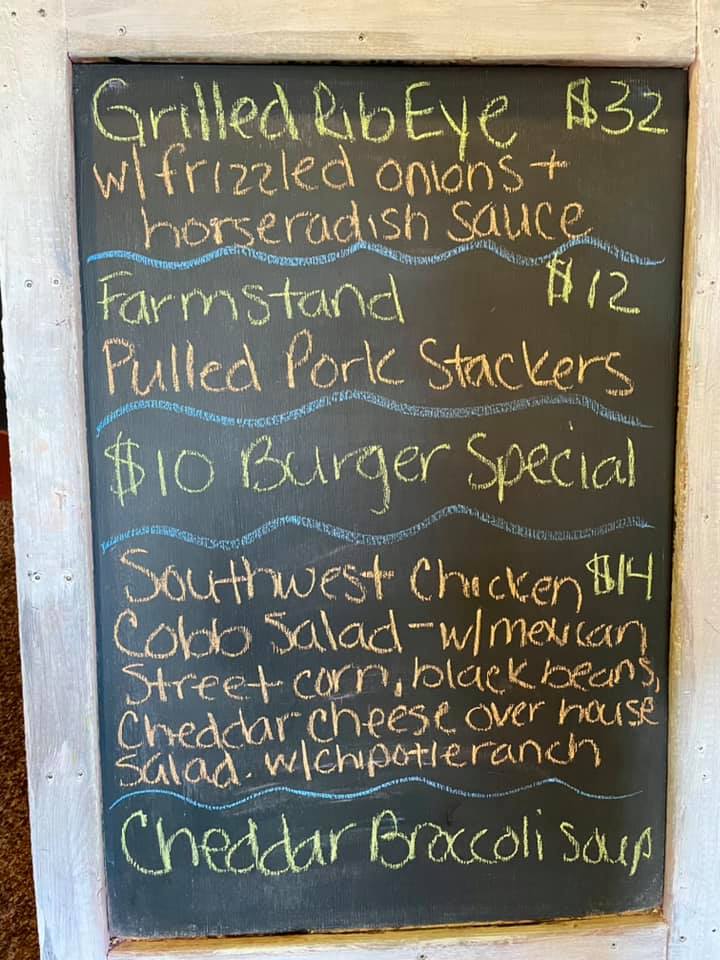 Grilled RibEye $32
w/frizzled onions +
horseradish sauce
Farmstand $12
Pulled Pork Stackers
$10 Burger Special
Southwest Chicken $14
Cobb Salad - w/mexican
street corn, black beans,
Cheddar cheese over house
salad. w/chipotle ranch
Cheddar Broccoli Soup